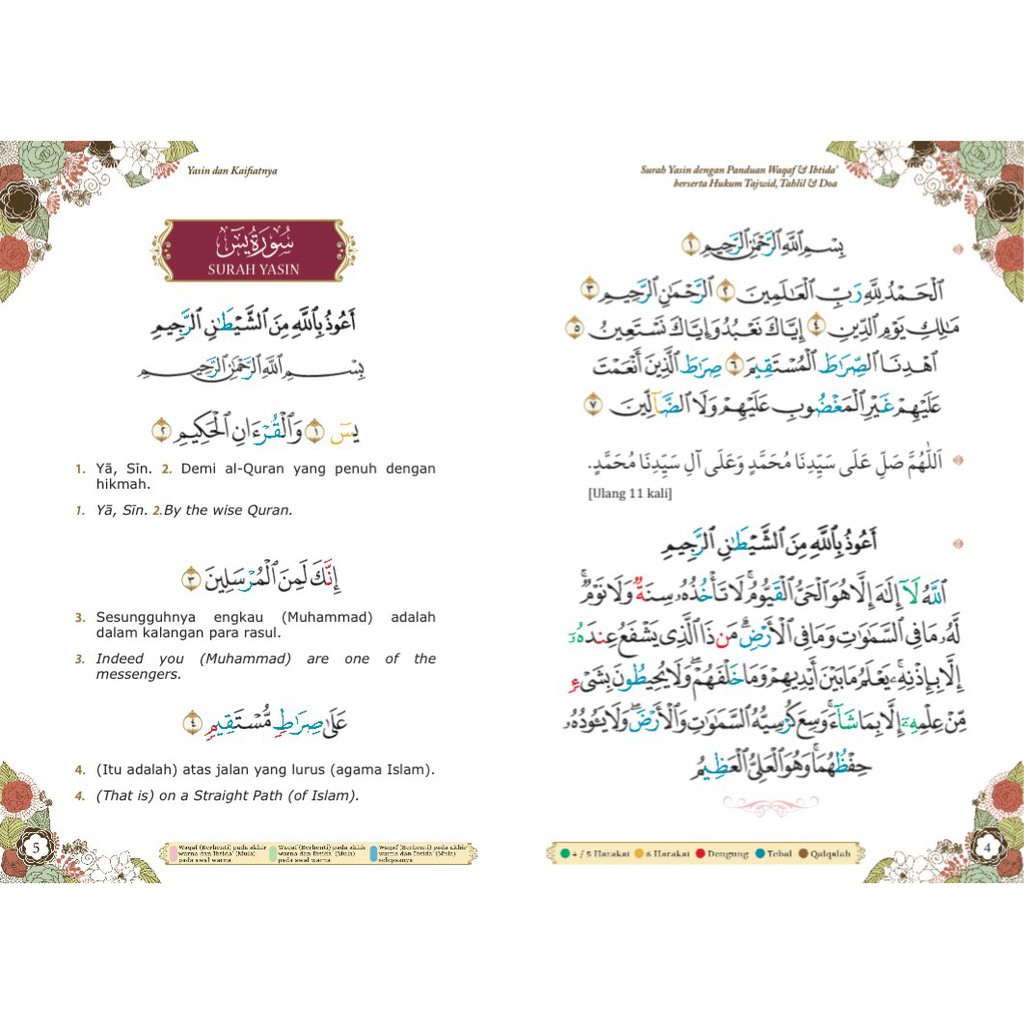 Surah Yasin dengan Panduan Waqaf & Ibtida'
berserta Hukum Tajwid, Tahlil & Doa
بِسْمِ اللَّهِ الرَّحْمَٰنِ الرَّحِيمِ ١
الْحَمْدُ لِلَّهِ رَبِّ الْعَالَمِينَ ٢ الرَّحْمَٰنِ الرَّحِيمِ ٣
مَالِكِ يَوْمِ الدِّينِ ٤ إِيَّاكَ نَعْبُدُ وَإِيَّاكَ نَسْتَعِينُ ٥
اهْدِنَا الصِّرَاطَ الْمُسْتَقِيمَ ٦ صِرَاطَ الَّذِينَ أَنْعَمْتَ
عَلَيْهِمْ غَيْرِ الْمَغْضُوبِ عَلَيْهِمْ وَلَا الضَّآلِّينَ ٧
اَللّٰهُمَّ صَلِّ عَلَى سَيِّدِنَا مُحَمَّدٍ وَعَلَى آلِ سَيِّدِنَا مُحَمَّدٍ.
[Ulang 11 kali]
أَعُوذُ بِاللَّهِ مِنَ الشَّيْطَانِ الرَّجِيمِ
اللَّهُ لَآ إِلَٰهَ إِلَّا هُوَ الْحَيُّ الْقَيُّومُ ۚ لَا تَأْخُذُهُۥ سِنَةٌ وَلَا نَوْمٌ ۚ
لَّهُۥ مَا فِي السَّمَٰوَٰتِ وَمَا فِي الْأَرْضِ ۗ مَن ذَا الَّذِي يَشْفَعُ عِندَهُۥٓ
إِلَّا بِإِذْنِهِۦ ۚ يَعْلَمُ مَا بَيْنَ أَيْدِيهِمْ وَمَا خَلْفَهُمْ ۖ وَلَا يُحِيطُونَ بِشَيْءٍ
مِّنْ عِلْمِهِۦٓ إِلَّا بِمَا شَآءَ ۚ وَسِعَ كُرْسِيُّهُ السَّمَٰوَٰتِ وَالْأَرْضَ ۖ وَلَا يَـُٔودُهُۥ
حِفْظُهُمَا ۚ وَهُوَ الْعَلِيُّ الْعَظِيمُ
4 / 5 Harakat 6 Harakat Dengung Tebal Qalqalah
4
Yasin dan Kaifiatnya
سُورَةُ يسٓ
SURAH YASIN
أَعُوذُ بِاللَّهِ مِنَ الشَّيْطَانِ الرَّجِيمِ
بِسْمِ اللَّهِ الرَّحْمَٰنِ الرَّحِيمِ
يسٓ ١ وَالْقُرْءَانِ الْحَكِيمِ ٢
1. Yā, Sīn. 2. Demi al-Quran yang penuh dengan
hikmah.
1. Yā, Sīn. 2.By the wise Quran.
إِنَّكَ لَمِنَ الْمُرْسَلِينَ ٣
3. Sesungguhnya engkau (Muhammad) adalah
dalam kalangan para rasul.
3. Indeed you (Muhammad) are one of the
messengers.
عَلَىٰ صِرَٰطٍ مُّسْتَقِيمٍ ٤
4. (Itu adalah) atas jalan yang lurus (agama Islam).
4. (That is) on a Straight Path (of Islam).
5
Waqaf (Berhenti) pada akhir
warna dan Ibtida' (Mula)
pada awal warna
Waqaf (Berhenti) pada akhir
warna dan Ibtida' (Mula)
pada awal warna
Waqaf (Berhenti) pada akhir
warna dan Ibtida' (Mula)
selepasnya